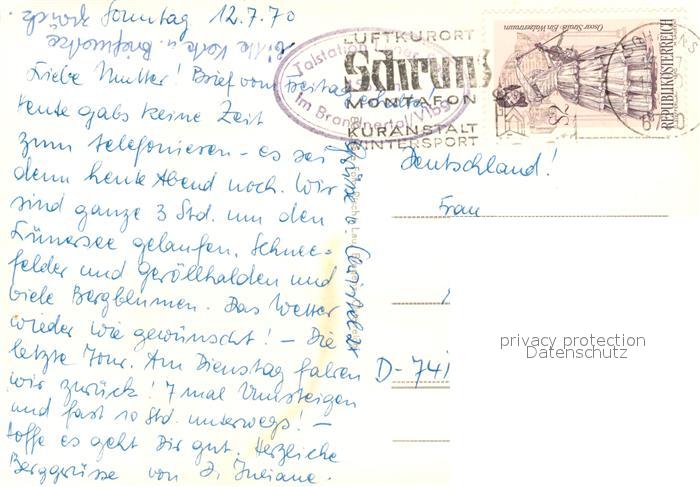 Sonntag 12.7.70
Bitte Karte u. Briefmarke
zurück
Liebe Mutter! Brief vom Freitag
erhalten!
Heute gabs keine Zeit
zum telefonieren - es sei
denn heute Abend noch. Wir
sind ganze 3 Std. um den
Lünersee gelaufen. Schnee-
felder und geröllhalden und
viele Bergblumen. Das Wetter
wieder wie gewünscht! - Die
letzte Tour. Am Dienstag fahren
wir zurück! 7 mal Umsteigen
und fast 10 Std. unterwegs! -
Hoffe es geht Dir gut. Herzliche
Berggrüsse von D. Juliane.
Grüsse v. Christel
Talstation Lünersee
im Brandnertal/Vlbg
LUFTKURORT
Schruns
MONTAFON
KURANSTALT
WINTERSPORT
Oscar Straus: Ein Walzertraum
REPUBLIK ÖSTERREICH
S2
6780
Deutschland!
Frau
D-741
privacy protection
Datenschutz